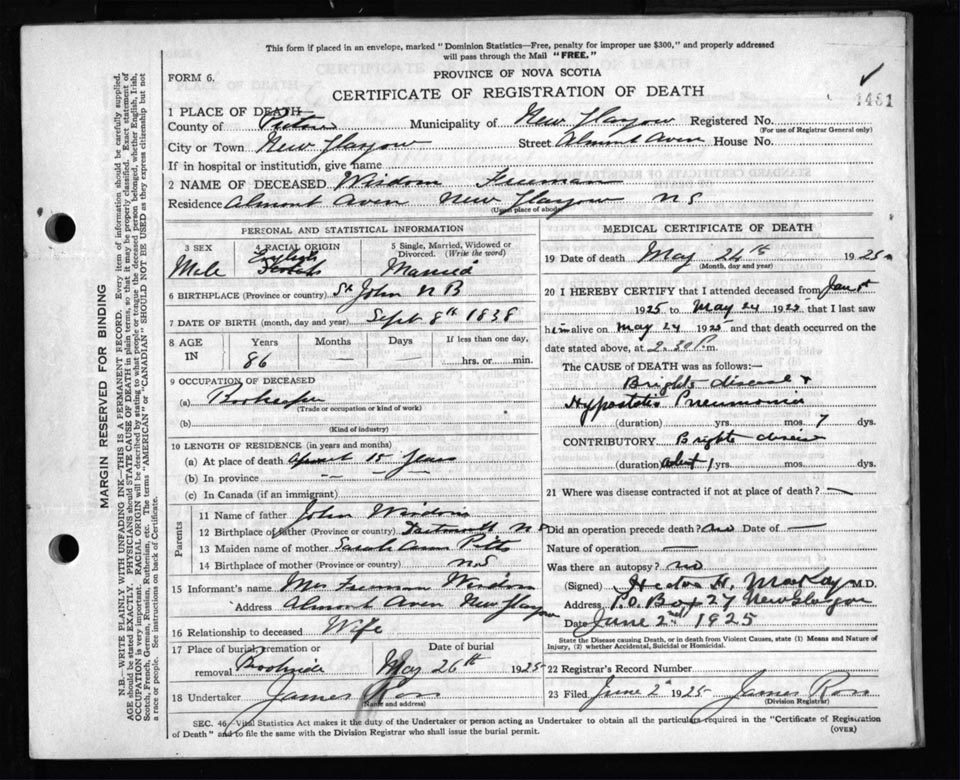 This form if placed in an envelope, marked "Dominion Statistics—Free, penalty for improper use $300," and properly addressed
will pass through the Mail "FREE."
FORM 6.
PROVINCE OF NOVA SCOTIA
CERTIFICATE OF REGISTRATION OF DEATH
1481
1 PLACE OF DEATH
County of Pictou Municipality of New Glasgow Registered No.
(For use of Registrar General only)
City or Town New Glasgow Street Almont Aven House No.
If in hospital or institution, give name
2 NAME OF DECEASED Wisdom Freeman
Residence Almont Aven New Glasgow NS
(Usual place of abode)
PERSONAL AND STATISTICAL INFORMATION
3 SEX
Male
4 RACIAL ORIGIN
English
5 Single, Married, Widowed or
Divorced. (Write the word)
Married
6 BIRTHPLACE (Province or country) St John N B
7 DATE OF BIRTH (month, day and year) Sept 8th 1838
8 AGE
IN
Years
86
Months
—
Days
—
If less than one day,
hrs. or min.
9 OCCUPATION OF DECEASED
(a) Bookkeeper
(Trade or occupation or kind of work)
(b)
(Kind of industry)
10 LENGTH OF RESIDENCE (in years and months)
(a) At place of death about 15 years
(b) In province — — —
(c) In Canada (if an immigrant)
Parents
11 Name of father John Wisdom
12 Birthplace of father (Province or country) Dartmouth N S
13 Maiden name of mother Sarah Ann Pitts
14 Birthplace of mother (Province or country) NS
15 Informant's name Mrs Freeman Wisdom
Address Almont Aven New Glasgow
16 Relationship to deceased Wife
17 Place of burial, cremation or
removal Brookside
Date of burial
May 26th 1925
18 Undertaker James Ross
(Name and address)
MEDICAL CERTIFICATE OF DEATH
19 Date of death May 24th 1925
(Month, day and year)
20 I HEREBY CERTIFY that I attended deceased from Jan 1st
1925 to May 24 1925 that I last saw
him alive on May 24 1925 and that death occurred on the
date stated above, at 2.30 P.m.
The CAUSE OF DEATH was as follows:—
Brights disease &
Hypostatic Pneumonia
(duration) yrs. mos. 7 dys.
CONTRIBUTORY Brights disease
(duration) about 1 yrs. mos. dys.
21 Where was disease contracted if not at place of death? —
Did an operation precede death? no Date of —
Nature of operation —
Was there an autopsy? no
(Signed) Hector H. MacKay M.D.
Address P.O. Box 27 New Glasgow
Date June 2nd 1925
State the Disease causing Death, or in death from Violent Causes, state (1) Means and Nature of
Injury, (2) whether Accidental, Suicidal or Homicidal.
22 Registrar's Record Number
23 Filed June 2nd 1925 James Ross
(Division Registrar)
SEC. 46, Vital Statistics Act makes it the duty of the Undertaker or person acting as Undertaker to obtain all the particulars required in the "Certificate of Registration
of Death" and to file the same with the Division Registrar who shall issue the burial permit.
(OVER)
MARGIN RESERVED FOR BINDING
N.B.—WRITE PLAINLY WITH UNFADING INK—THIS IS A PERMANENT RECORD. Every item of information should be carefully supplied.
AGE should be stated EXACTLY. PHYSICIANS should STATE CAUSE OF DEATH in plain terms, so that it may be properly classified. Exact statement of
OCCUPATION is very important. RACIAL ORIGIN will be described by stating to what people or tongue the deceased person belonged, whether English, Irish,
Scotch, French, German, Russian, Ruthenian, etc. The terms "AMERICAN" or "CANADIAN" SHOULD NOT BE USED as they express citizenship but not
a race or people. See instructions on back of Certificate.